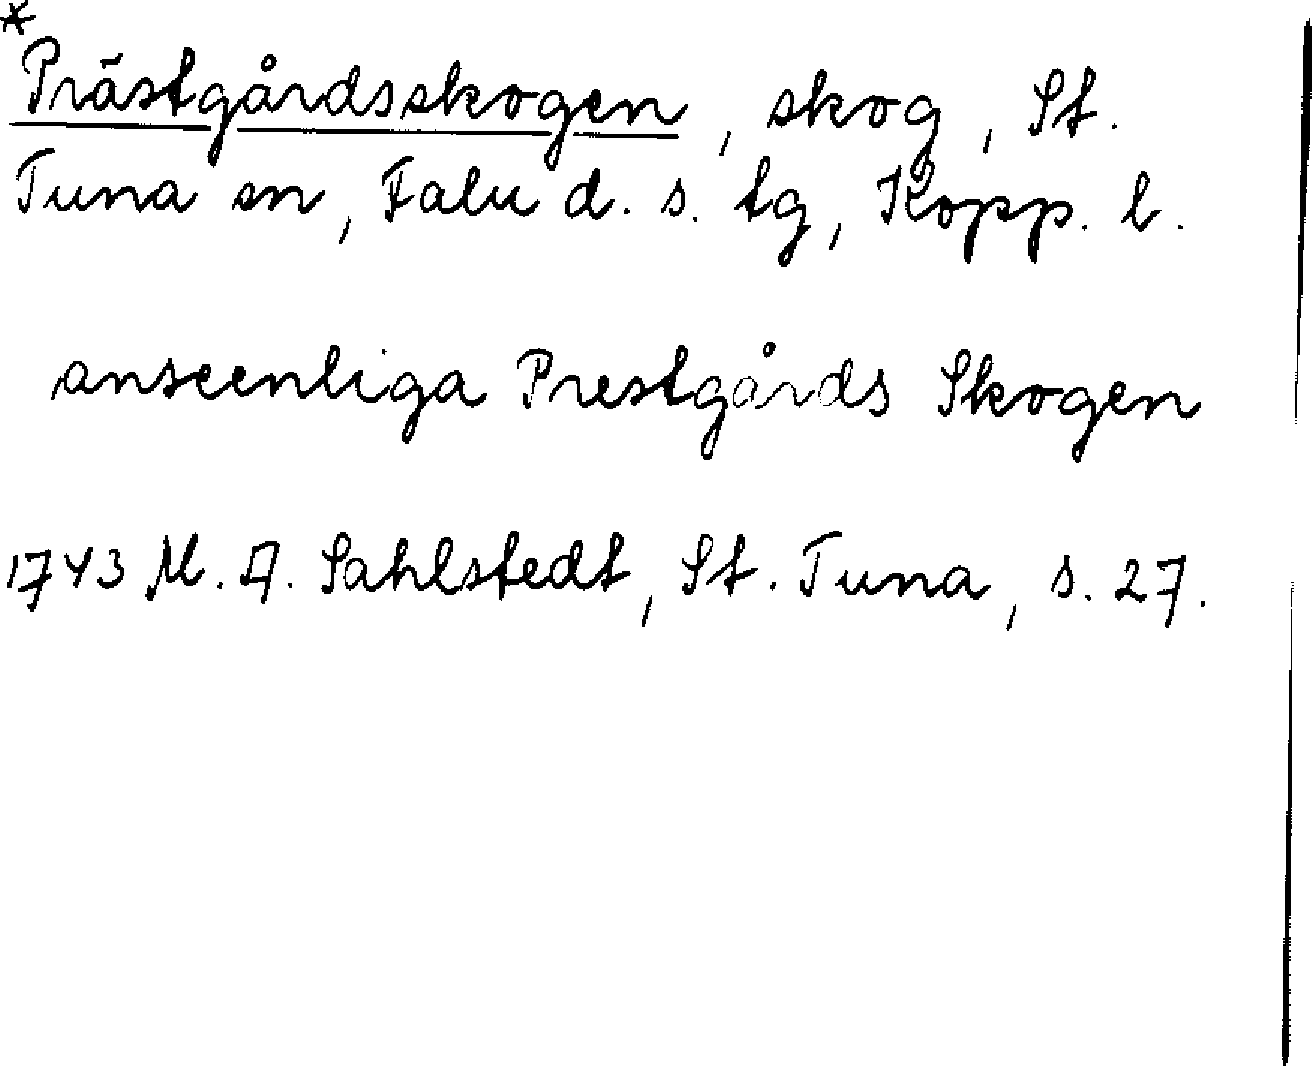 *
Prästgårdsskogen, skog, St.
Tuna sn, Falu d. s. tg, Kopp. l.
anseenliga Prestgårds Skogen
1743 M. A. Sahlstedt, St. Tuna, s. 27.